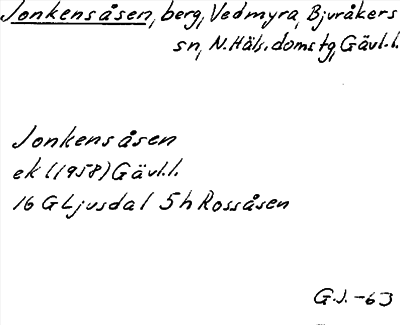 Jonkensåsen, berg, Vedmyra, Bjuråkers
sn, N. Häls. domstg, Gävl. l.
Jonkensåsen
ek (1958) Gävl. l.
16 G Ljusdal 5 h Rossåsen
G.J. -63